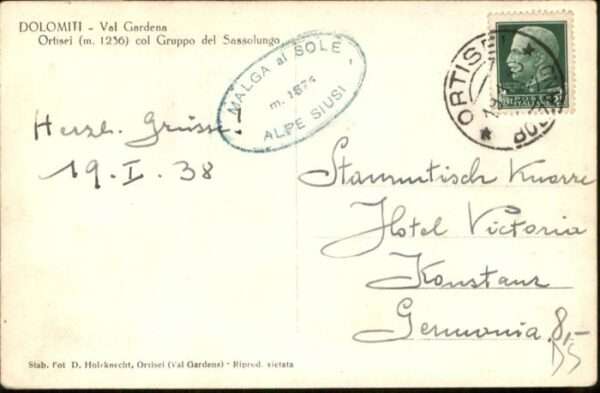 DOLOMITI - Val Gardena
Ortisei (m. 1236) col Gruppo del Sassolungo
MALGA al SOLE
ALPE SIUSI
ORTISEI
POSTE
ITALIANE
Herzl. Grüsse!
19. I. 38
Stammtisch Knorre
Hotel Victoria
Konstanz
Germania
8,-
DS
Stab. Fot D. Holzknecht, Ortisei (Val Gardena) - Riprod. vietata